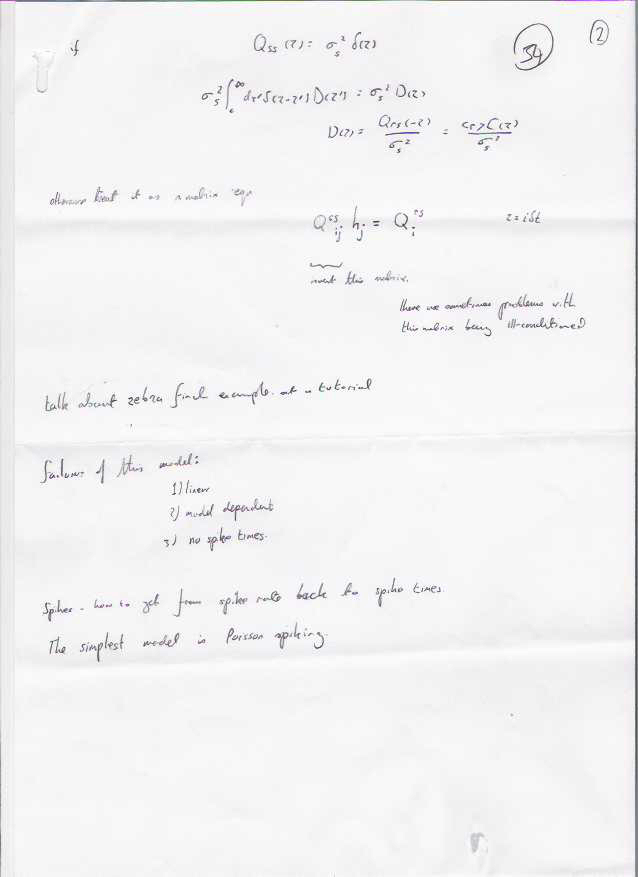 ② 
if Q_ss(τ) = σ_s² δ(τ) 54
σ_s² ∫_0^∞ dτ' δ(τ-τ') D(τ') = σ_s² D(τ)
D(τ) = Q_rs(-τ)/σ_s² = <r>C(τ)/σ_s²
otherwise treat it as a matrix eqn
Q^ss_ij h_j = Q^rs_i τ = iδt
invert this matrix.
there are sometimes problems with
this matrix being ill-conditioned
talk about zebra finch example at a tutorial
failures of this model:
1) linear
2) model dependent
3) no spike times.
Spikes - how to get from spike rate back to spike times.
The simplest model is Poisson spiking.